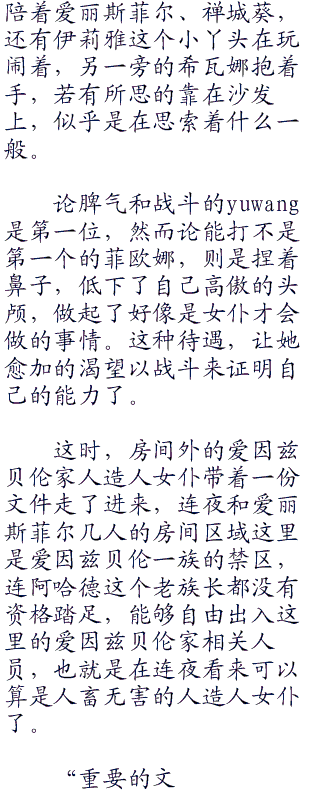 陪着爱丽斯菲尔、禅城葵，
还有伊莉雅这个小丫头在玩
闹着，另一旁的希瓦娜抱着
手，若有所思的靠在沙发
上，似乎是在思索着什么一
般。
论脾气和战斗的yuwang
是第一位，然而论能打不是
第一个的菲欧娜，则是捏着
鼻子，低下了自己高傲的头
颅，做起了好像是女仆才会
做的事情。这种待遇，让她
愈加的渴望以战斗来证明自
己的能力了。
这时，房间外的爱因兹
贝伦家人造人女仆带着一份
文件走了进来，连夜和爱丽
斯菲尔几人的房间区域这里
是爱因兹贝伦一族的禁区，
连阿哈德这个老族长都没有
资格踏足，能够自由出入这
里的爱因兹贝伦家相关人
员，也就是在连夜看来可以
算是人畜无害的人造人女仆
了。
“重要的文